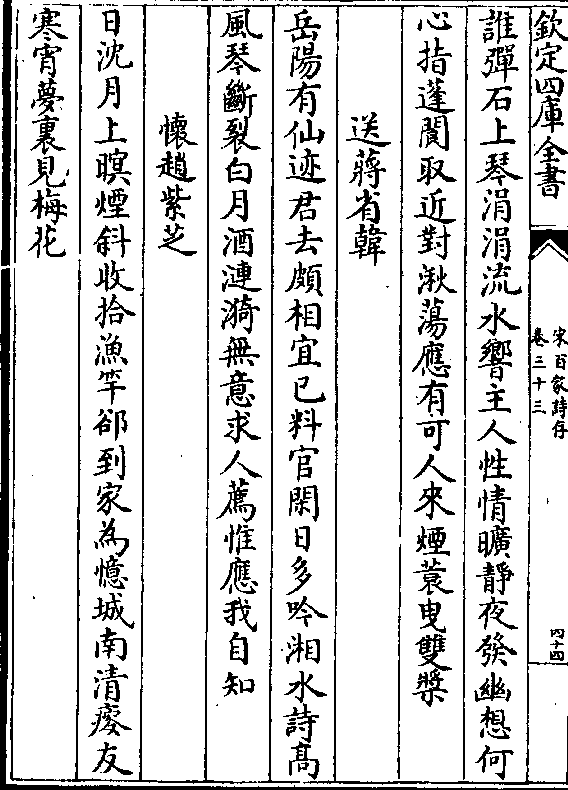 欽定四庫全書
宋百家詩存
卷三十三
四十四
誰彈石上琴涓涓流水響主人性情曠靜夜發幽想何
心指蓬閬取近對湫蕩應有可人來煙蓑曳雙槳
送蔣省韓
岳陽有仙迹君去頗相宜已料官閑日多吟湘水詩髙
風琴斷裂白月酒漣漪無意求人薦惟應我自知
懷趙紫芝
日沈月上暝煙斜收拾漁竿郤到家為憶城南清瘦友
寒宵夢裏見梅花